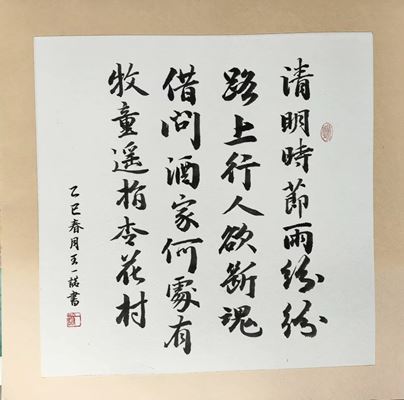 清明時節雨紛紛
路上行人欲斷魂
借問酒家何處有
牧童遥指杏花村
乙巳春月王一諾書